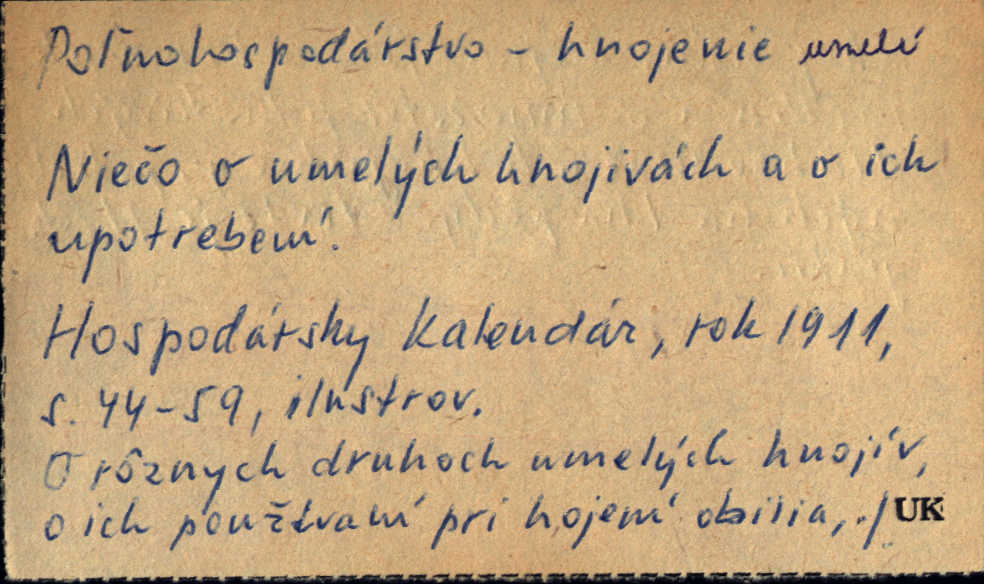 Poľnohospodárstvo - hnojenie umelé
Niečo o umelých hnojivách a o ich
upotrebení.
Hospodársky Kalendár, rok 1911,
s. 44-59, ilustrov.
O rôznych druhoch umelých hnojív,
o ich používaní pri hojení obilia, ./ UK